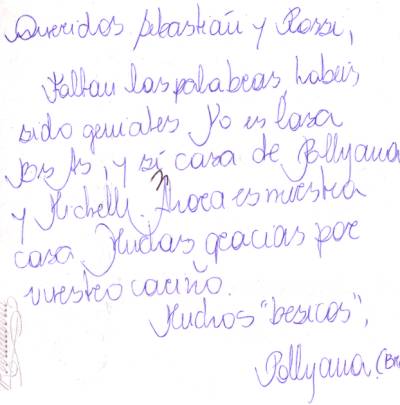 Queridos Sebastián y Rossi,
Faltan las palabras, habéis
sido geniales. Yo es casa
Dos As, y sí casa de Pollyana
y Michelli. Ahora es nuestra
casa. Muchas gracias por
vuestro cariño.
Muchos "besicos",
Pollyana (Br